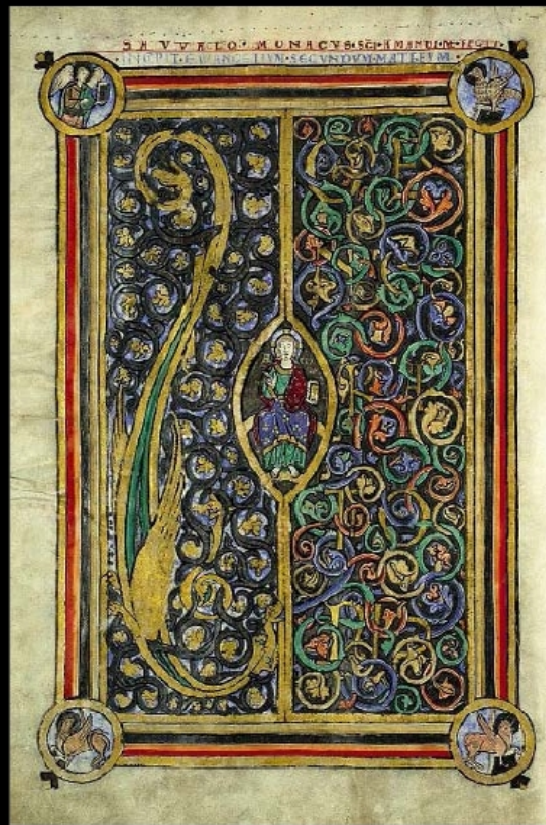 SAVVALO · MONACVS · SCI · AMANDI · M · FECIT ·
INCIPIT · EWANGELIUM · SECVNDVM · MATTEVM ·